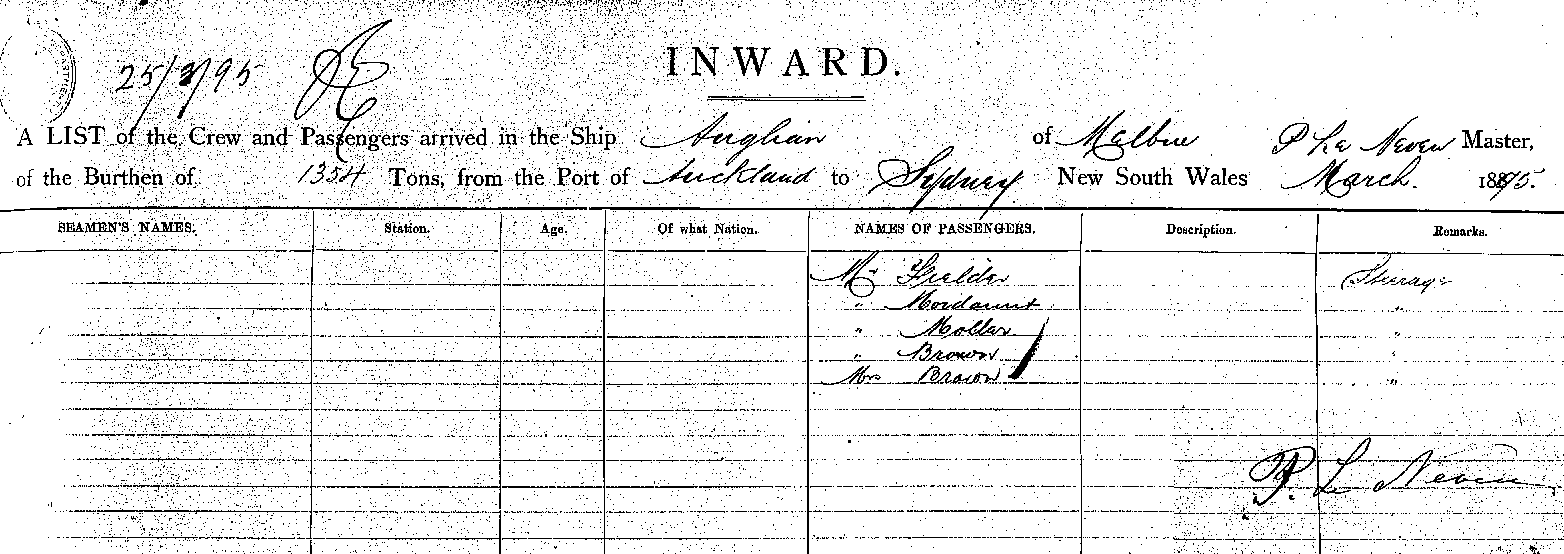 25/3/95
INWARD.
A LIST of the Crew and Passengers arrived in the Ship Anglian of Melbne P Le Neven Master,
of the Burthen of 1354 Tons, from the Port of Auckland to Sydney New South Wales March. 1895.
SEAMEN'S NAMES. Station. Age. Of what Nation. NAMES OF PASSENGERS. Description. Remarks.
Mr Steerage
" Mordaunt "
" "
" Brown "
Mrs Brown "
P. Le Neven